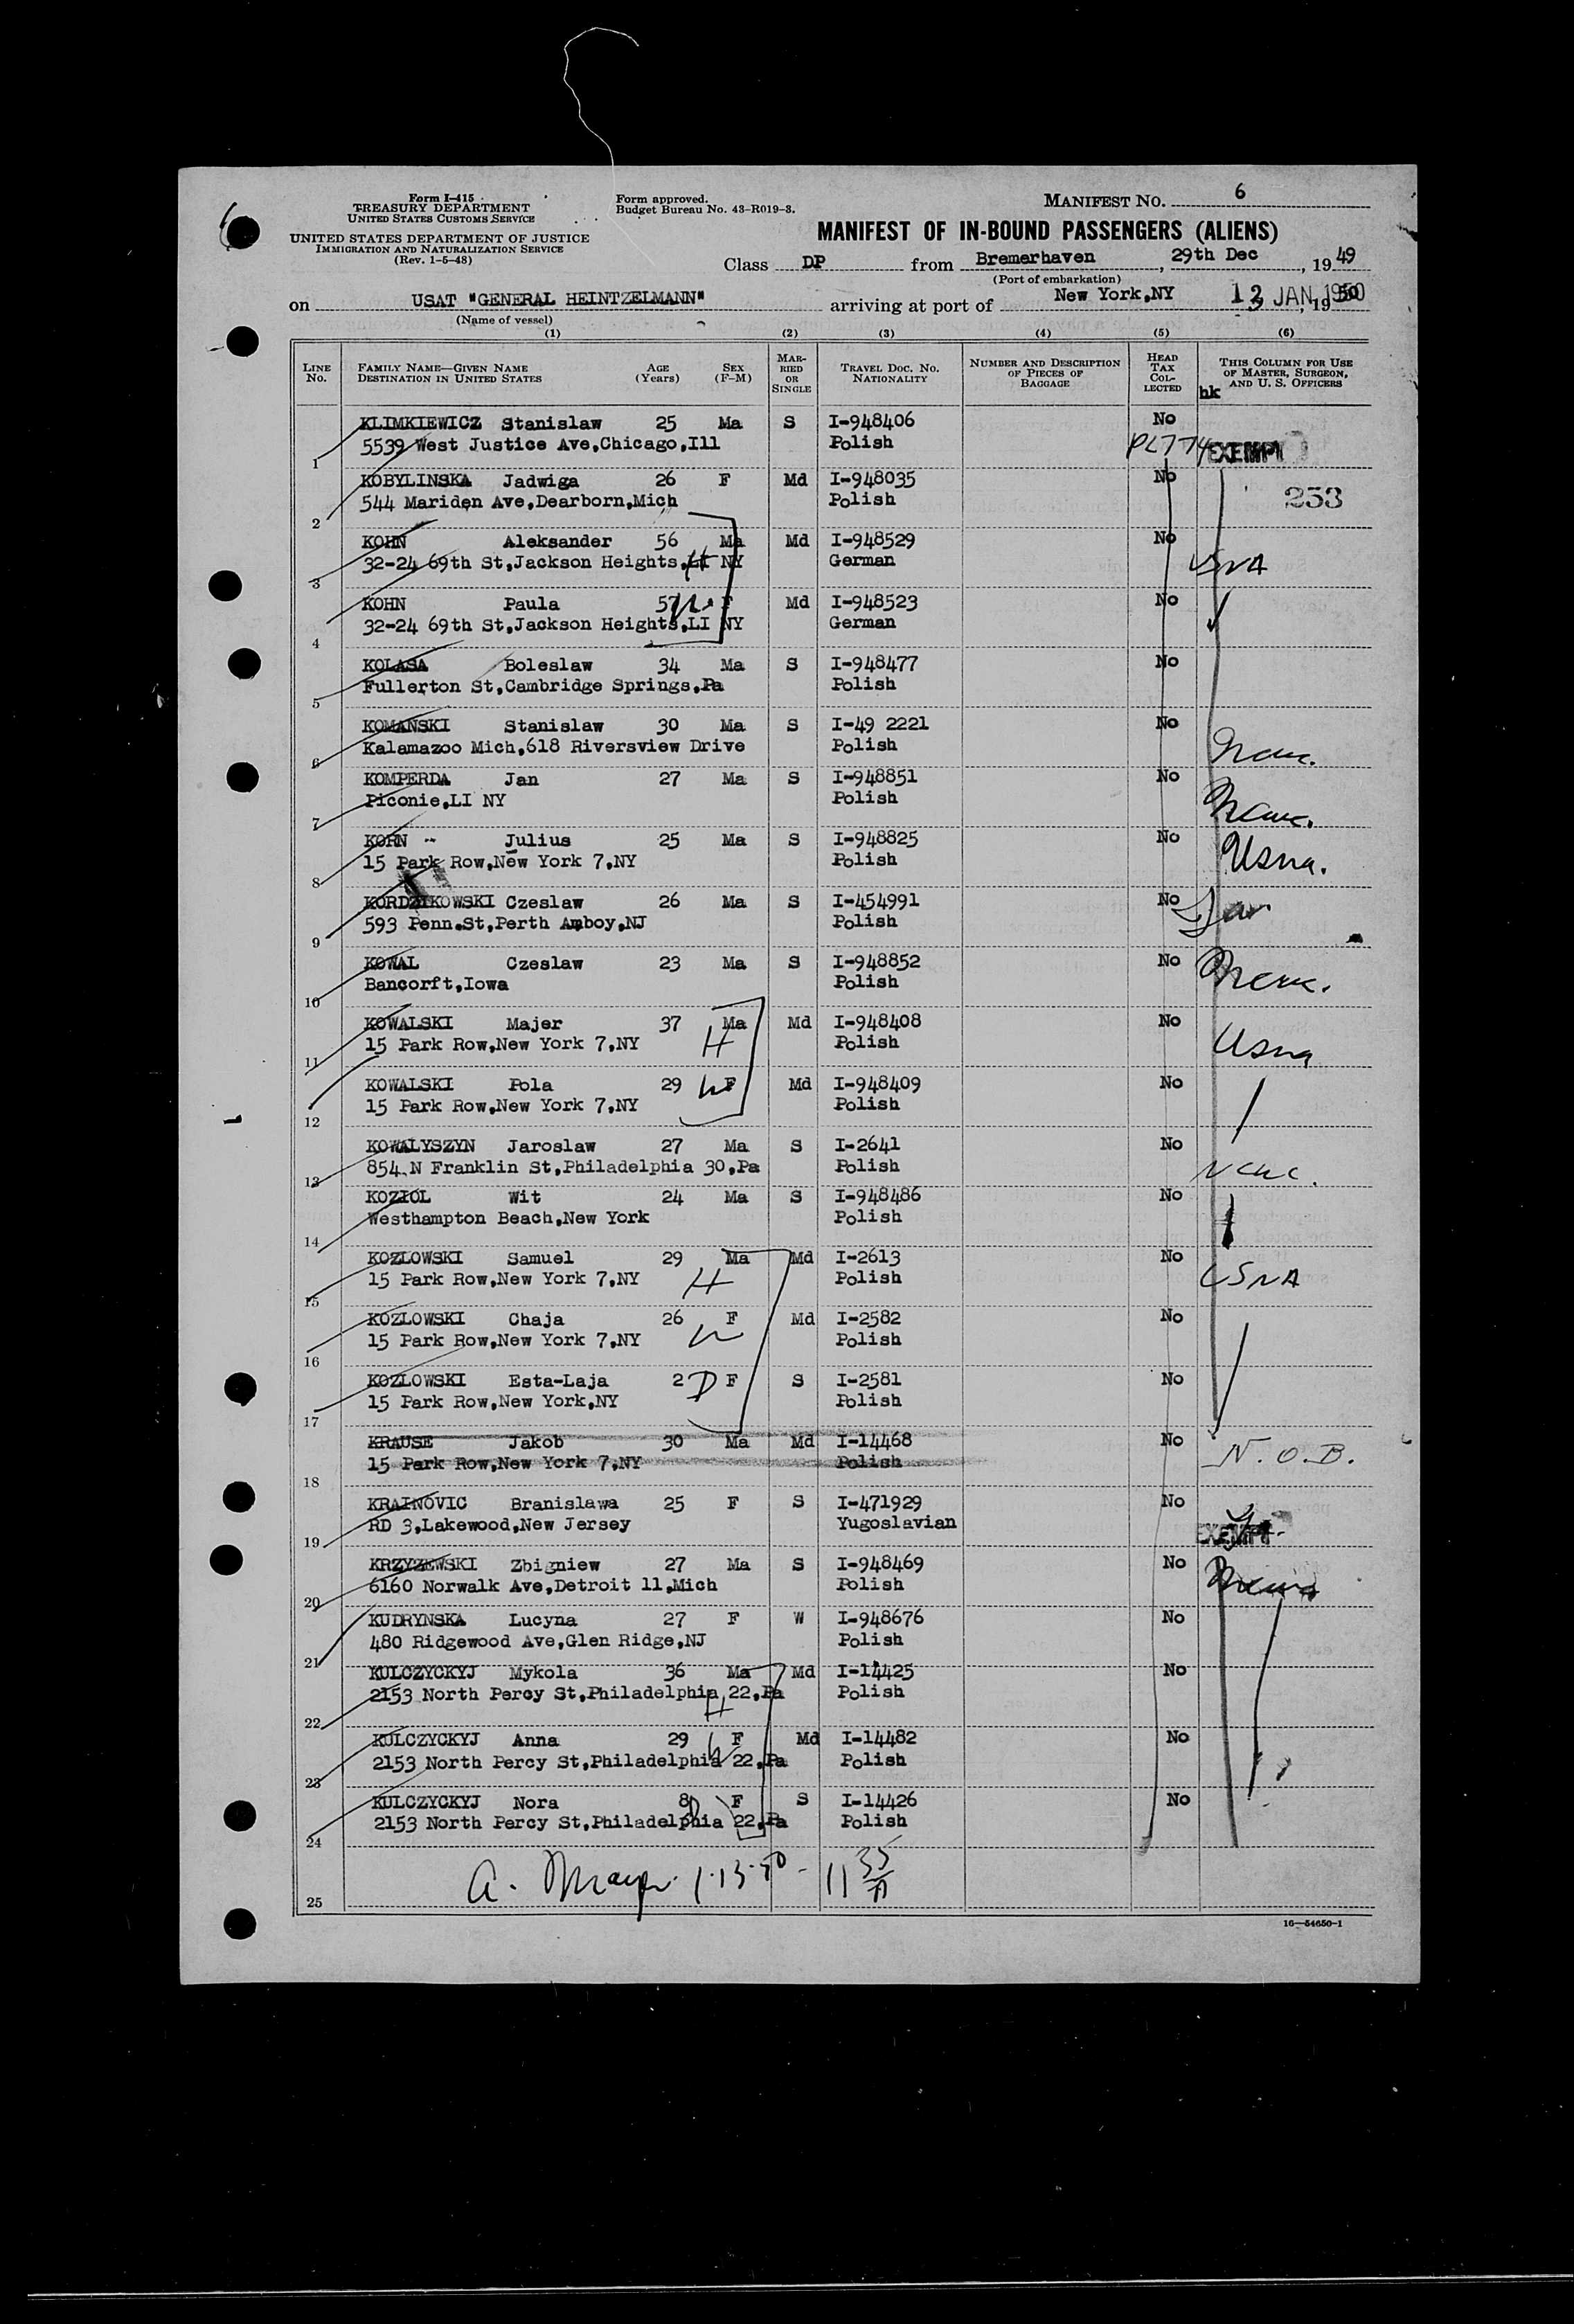 Form I-415
TREASURY DEPARTMENT
UNITED STATES CUSTOMS SERVICE
UNITED STATES DEPARTMENT OF JUSTICE
IMMIGRATION AND NATURALIZATION SERVICE
(Rev. 1-5-48)
Form approved.
Budget Bureau No. 43-R019-3.
MANIFEST NO. 6
MANIFEST OF IN-BOUND PASSENGERS (ALIENS)
Class DP from Bremerhaven, 29th Dec, 1949
(Port of embarkation)
on USAT "GENERAL HEINTZELMANN" arriving at port of New York,NY 13 JAN 1950
(Name of vessel)
(1) (2) (3) (4) (5) (6)
LINE NO. FAMILY NAME—GIVEN NAME DESTINATION IN UNITED STATES AGE (Years) SEX (F-M) MARRIED OR SINGLE TRAVEL DOC. NO. NATIONALITY NUMBER AND DESCRIPTION OF PIECES OF BAGGAGE HEAD TAX COLLECTED THIS COLUMN FOR USE OF MASTER, SURGEON, AND U. S. OFFICERS
hk
KLIMKIEWICZ Stanislaw 25 Ma S I-948406 No
1 5539 West Justice Ave,Chicago,Ill Polish PL774 EXEMPT
KOBYLINSKA Jadwiga 26 F Md I-948035 No
2 544 Mariden Ave,Dearborn,Mich Polish 253
KOHN Aleksander 56 Ma Md I-948529 No
3 32-24 69th St,Jackson Heights,LI NY H German USNA
KOHN Paula 57 W F Md I-948523 No
4 32-24 69th St,Jackson Heights,LI NY German
KOLASA Boleslaw 34 Ma S I-948477 No
5 Fullerton St,Cambridge Springs,Pa Polish
KOMANSKI Stanislaw 30 Ma S I-49 2221 No
6 Kalamazoo Mich,618 Riversview Drive Polish
KOMPERDA Jan 27 Ma S I-948851 No
7 Piconie,LI NY Polish
KORN -- Julius 25 Ma S I-948825 No
8 15 Park Row,New York 7,NY Polish Usna.
KORDZIKOWSKI Czeslaw 26 Ma S I-454991 No
9 593 Penn.St,Perth Amboy,NJ Polish
KOWAL Czeslaw 23 Ma S I-948852 No
10 Bancorft,Iowa Polish
KOWALSKI Majer 37 Ma Md I-948408 No
11 15 Park Row,New York 7,NY H Polish Usna
KOWALSKI Pola 29 W F Md I-948409 No
12 15 Park Row,New York 7,NY Polish
KOWALYSZYN Jaroslaw 27 Ma S I-2641 No
13 854 N Franklin St,Philadelphia 30,Pa Polish
KOZIOL Wit 24 Ma S I-948486 No
14 Westhampton Beach,New York Polish
KOZLOWSKI Samuel 29 Ma Md I-2613 No
15 15 Park Row,New York 7,NY H Polish USNA
KOZLOWSKI Chaja 26 F Md I-2582 No
16 15 Park Row,New York 7,NY W Polish
KOZLOWSKI Esta-Laja 2 D F S I-2581 No
17 15 Park Row,New York,NY Polish
KRAUSE Jakob 30 Ma Md I-14468 No
18 15 Park Row,New York 7,NY Polish N.O.B.
KRAINOVIC Branislawa 25 F S I-471929 No
19 RD 3,Lakewood,New Jersey Yugoslavian EXEMPT
KRZYZEWSKI Zbigniew 27 Ma S I-948469 No
20 6160 Norwalk Ave,Detroit 11,Mich Polish
KUDRYNSKA Lucyna 27 F W I-948676 No
21 480 Ridgewood Ave,Glen Ridge,NJ Polish
KULCZYCKYJ Mykola 36 Ma Md I-14425 No
22 2153 North Percy St,Philadelphia 22,Pa H Polish
KULCZYCKYJ Anna 29 W F Md I-14482 No
23 2153 North Percy St,Philadelphia 22,Pa Polish
KULCZYCKYJ Nora 8 D F S I-14426 No
24 2153 North Percy St,Philadelphia 22,Pa Polish
25 A. 1-13-50 - 11 35/A
16—54650-1